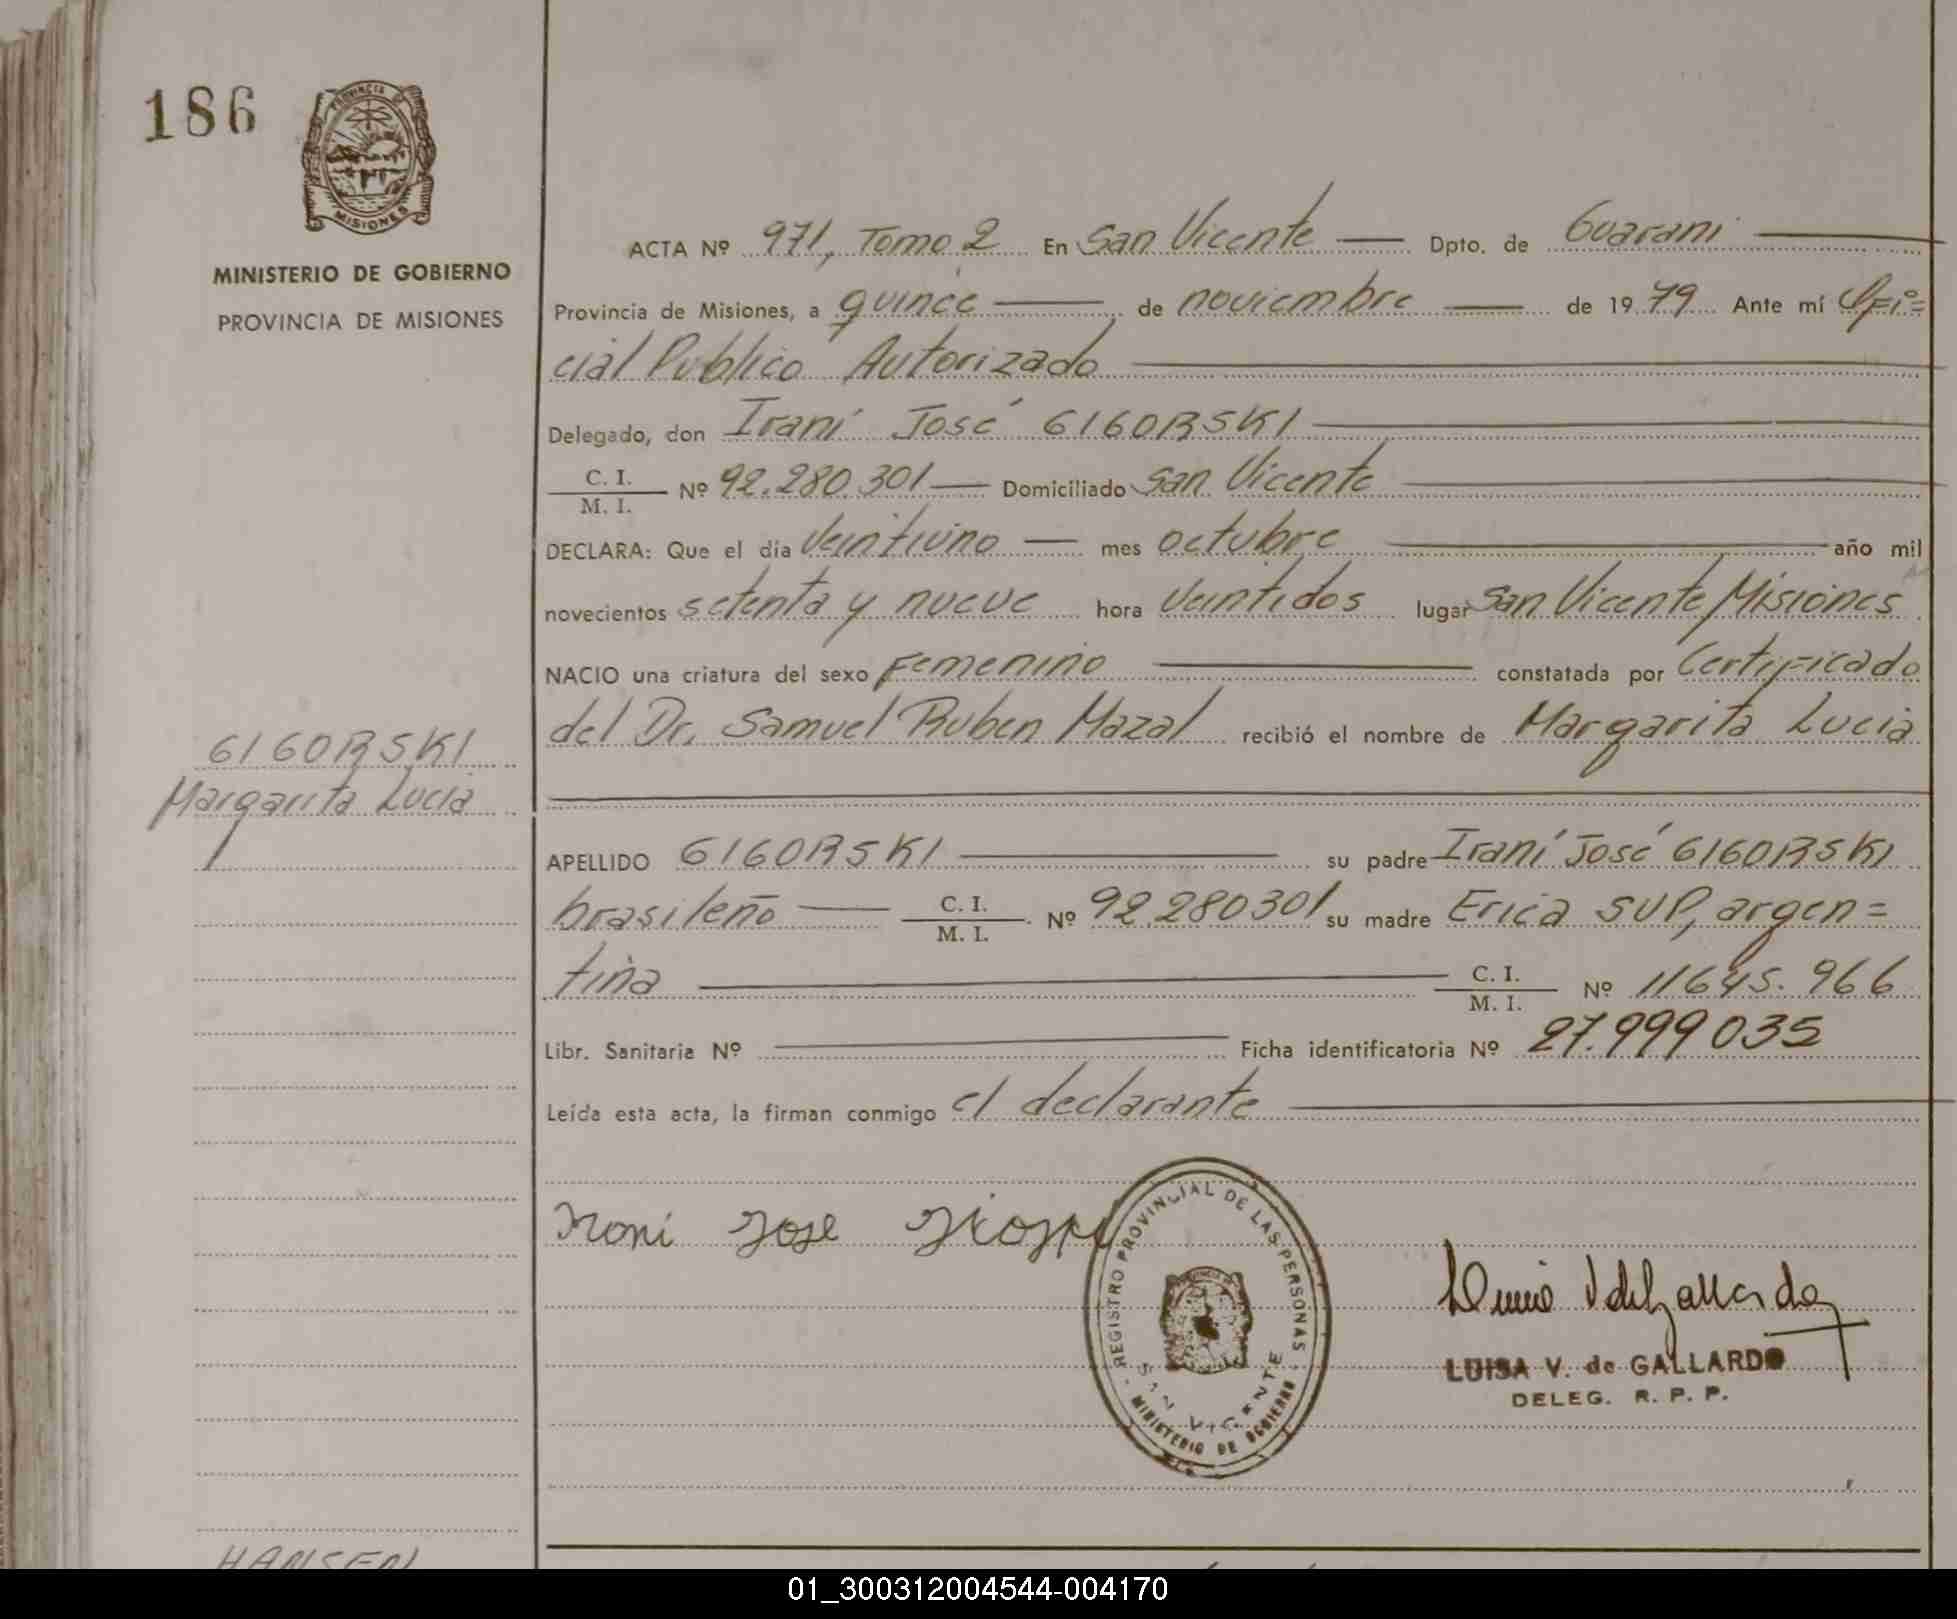 186
PROVINCIA DE
MISIONES
MINISTERIO DE GOBIERNO
PROVINCIA DE MISIONES
ACTA Nº 971, Tomo 2 En San Vicente Dpto. de Guarani
Provincia de Misiones, a quince de noviembre de 1979 Ante mí Ofi=
cial Publico Autorizado
Delegado, don Iraní José GIGORSKI
C. I. / M. I. Nº 92.280.301 Domiciliado San Vicente
DECLARA: Que el día veintiuno mes octubre año mil
novecientos setenta y nueve hora veintidos lugar San Vicente, Misiones
NACIO una criatura del sexo Femenino constatada por Certificado
del Dr. Samuel Ruben Mazal recibió el nombre de Margarita Lucia
GIGORSKI
Margarita Lucia
APELLIDO GIGORSKI su padre Iraní José GIGORSKI
brasileño C. I. / M. I. Nº 92.280301 su madre Erica SUP, argen=
tina C. I. / M. I. Nº 11645.966
Libr. Sanitaria Nº Ficha identificatoria Nº 27.999035
Leída esta acta, la firman conmigo el declarante
Irani Jose
REGISTRO PROVINCIAL DE LAS PERSONAS
SAN VICENTE
MINISTERIO DE GOBIERNO
LUISA V. de GALLARDO
DELEG. R. P. P.
HANSEN
01_300312004544-004170